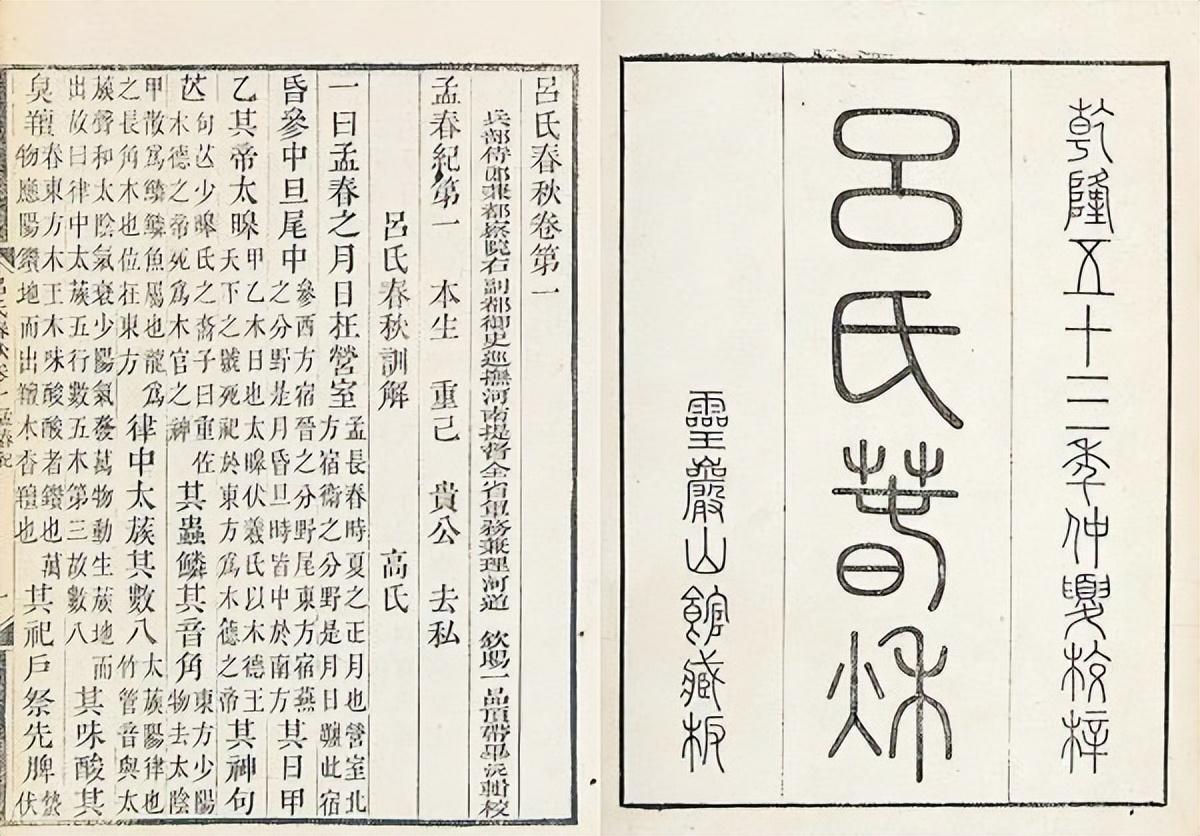 乾隆五十三年仲夏校梓
呂氏春秋
靈巖山館藏板
呂氏春秋卷第一
兵部侍郎兼都察院右副都御史巡撫河南提督全省軍務兼理河道 欽賜一品頂帶畢沅輯校
孟春紀第一 本生 重己 貴公 去私
呂氏春秋訓解 高氏
一曰孟春之月日在營室孟長春時夏之正月也營室北方宿衞之分野是月日躔此宿
昏參中旦尾中參西方宿晉之分野尾東方宿燕之分野是月昏旦時皆中於南方其日甲
乙其帝太皞甲乙木日也太皞伏羲氏以木德王天下之號死祀於東方爲木德之帝其神句
芒句芒少皞氏之裔子曰重佐木德之帝死爲木官之神其蟲鱗其音角東方少陽物去太陰
甲散爲鱗鱗魚屬也龍爲之長角木也位在東方律中太蔟其數八太蔟陽律也竹管音與太
蔟聲和太陰氣衰少陽氣發萬物動生蔟地而出故曰律中太蔟五行數五木第三故數八其味酸其
臭羶春東方木王木味酸酸者鑽也萬物應陽鑽地而出羶木香羶也其祀戶祭先脾蟄伏